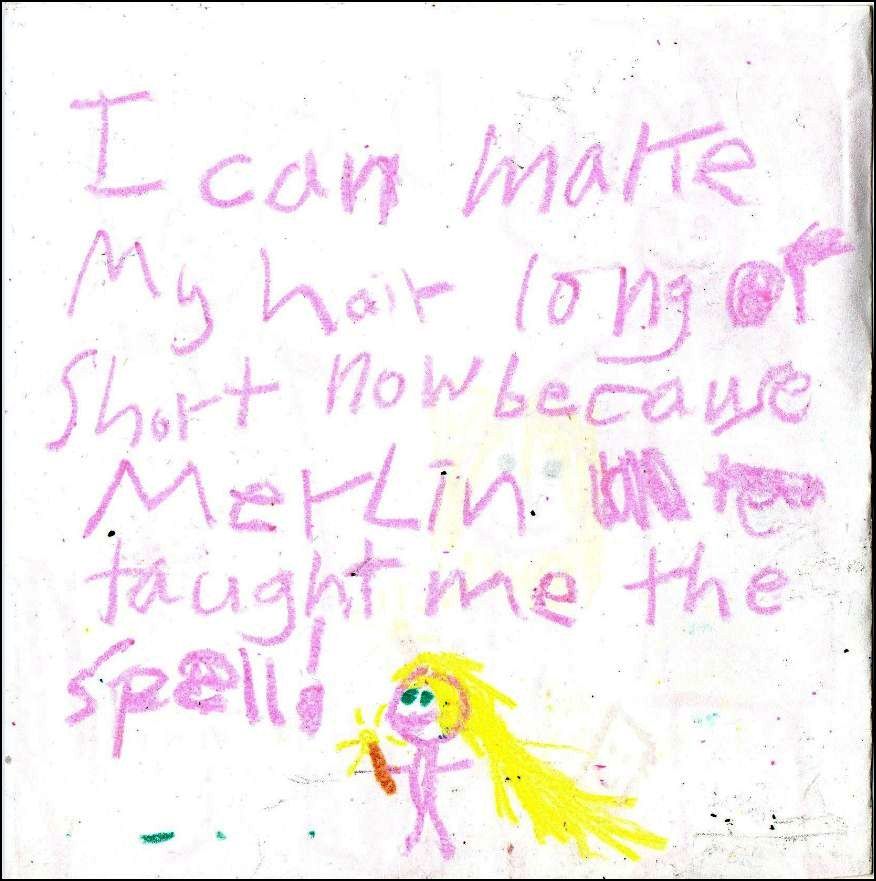 I can make
My hair long or
short now because
MerLin
taught me the
spell!